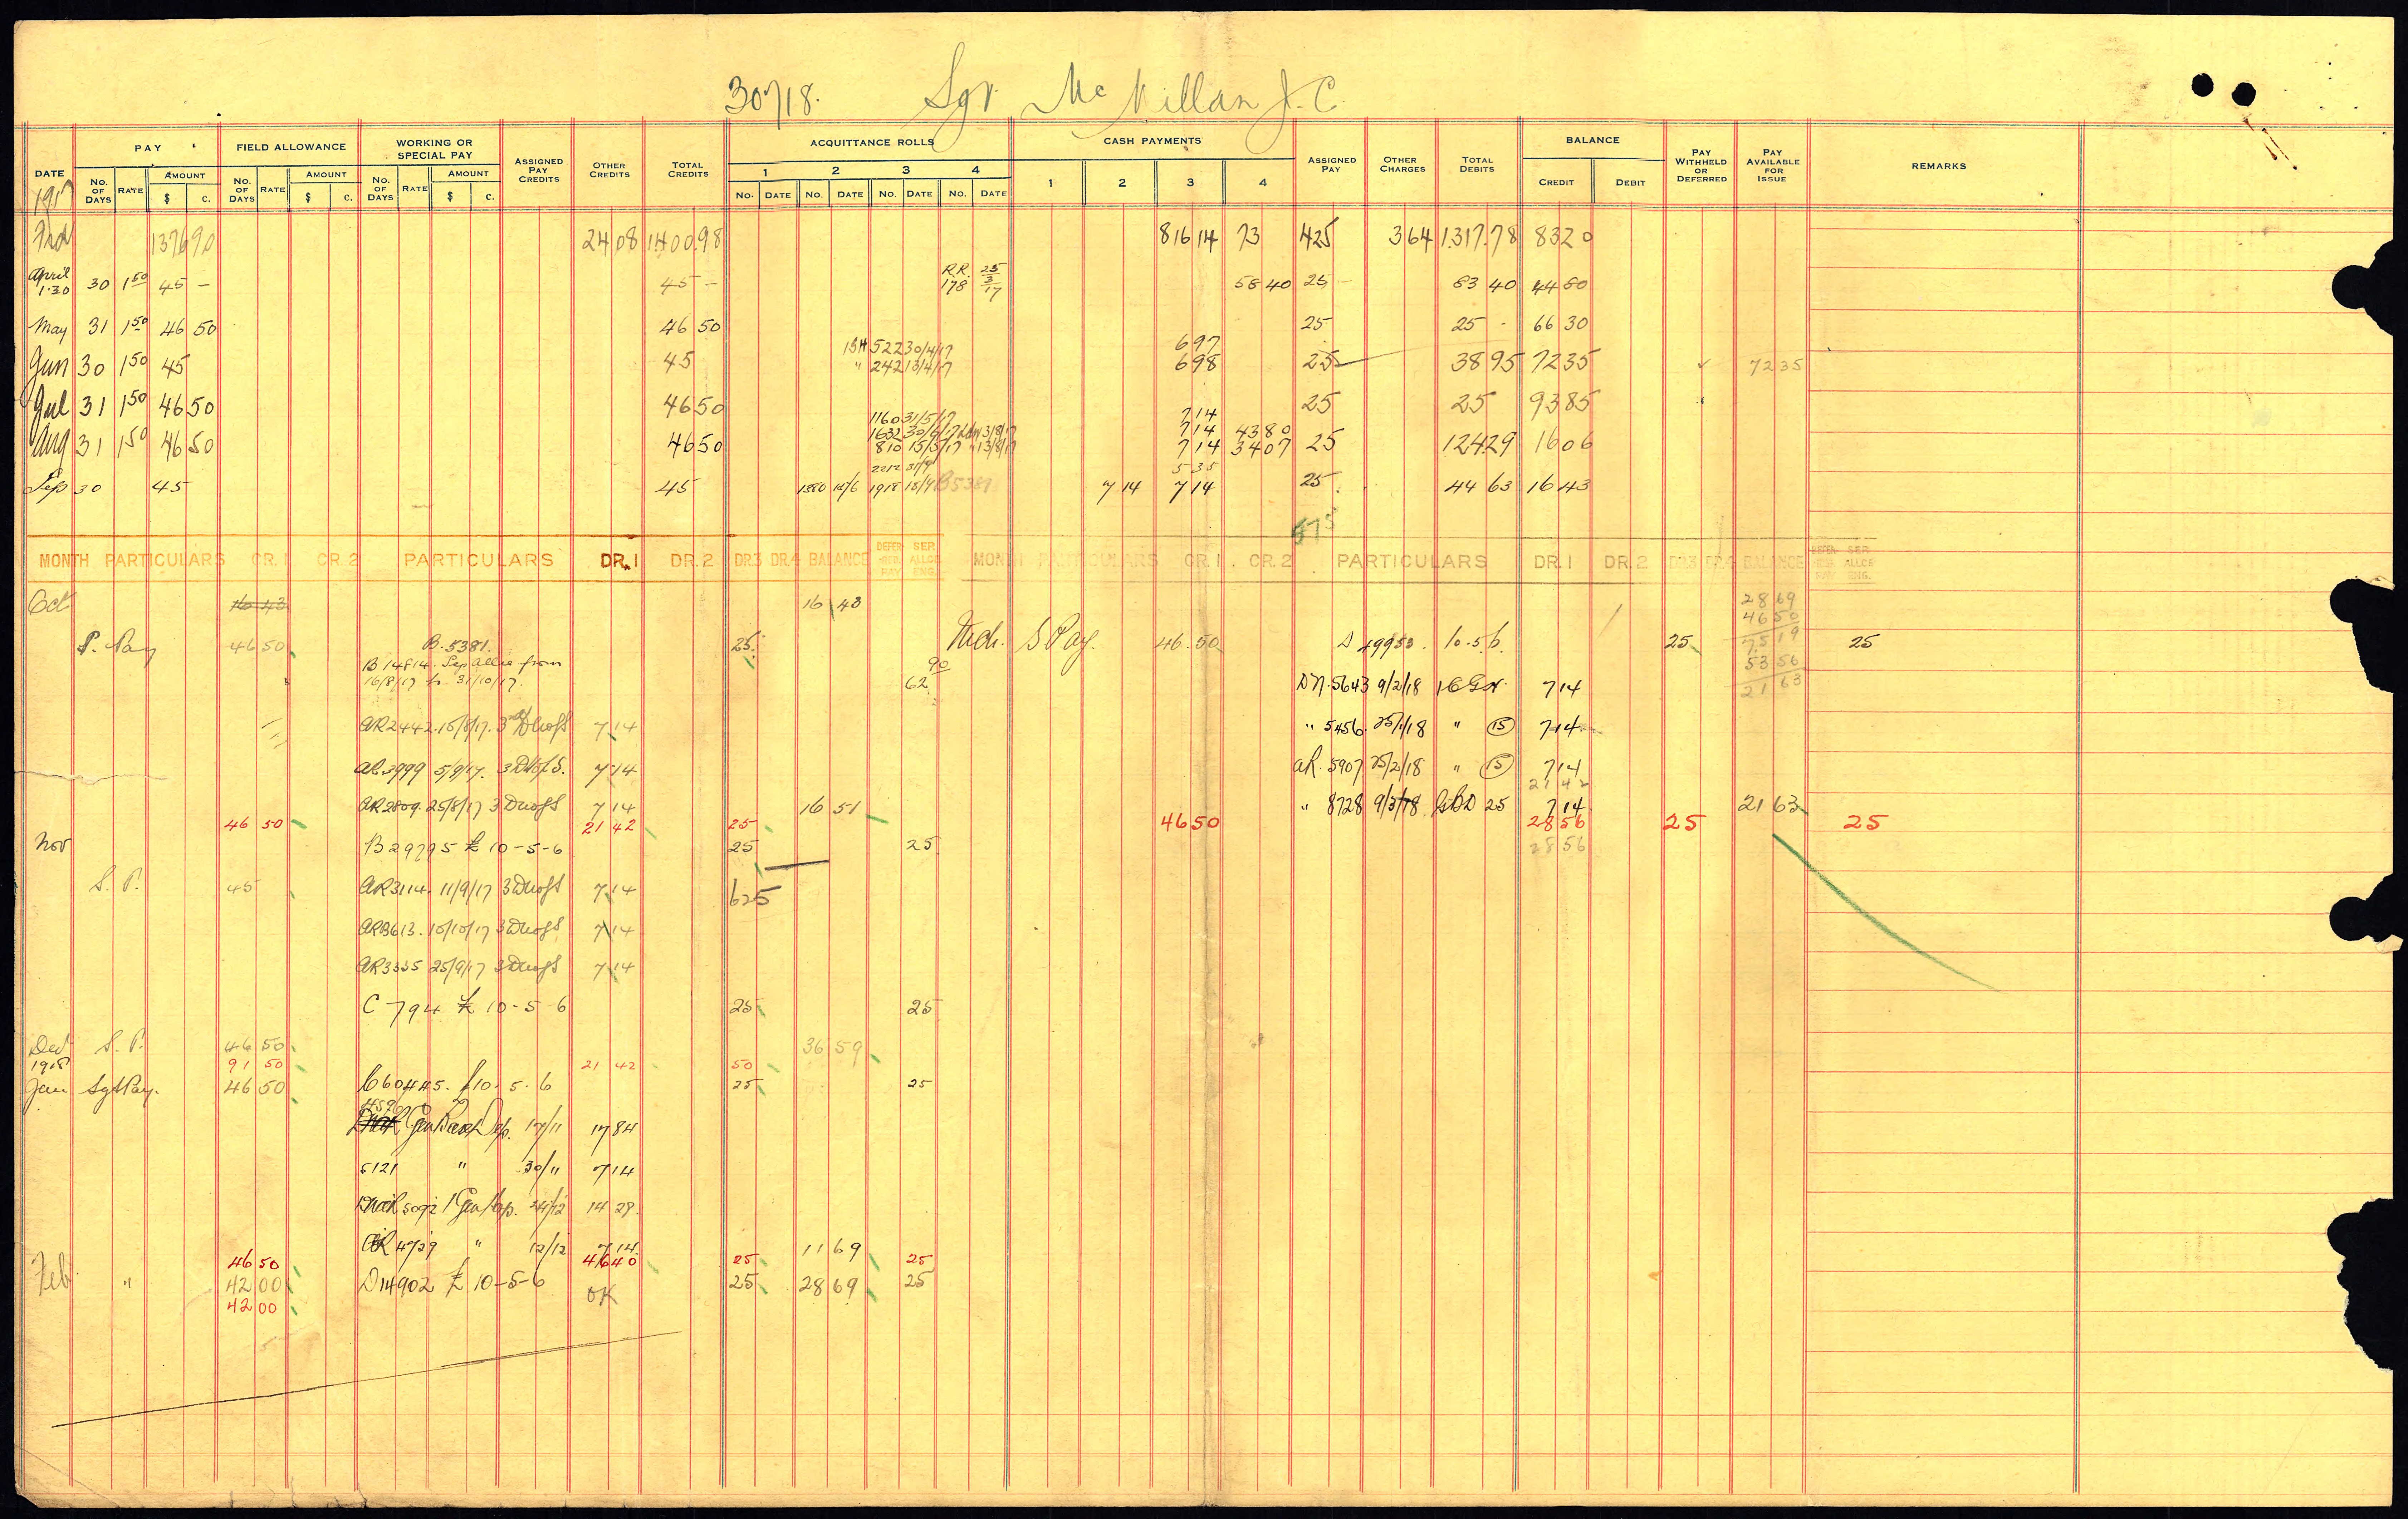 30718. Sgt. Mc Millan J. C.
DATE PAY FIELD ALLOWANCE WORKING OR SPECIAL PAY ASSIGNED PAY CREDITS OTHER CREDITS TOTAL CREDITS ACQUITTANCE ROLLS CASH PAYMENTS ASSIGNED PAY OTHER CHARGES TOTAL DEBITS BALANCE PAY WITHHELD OR DEFERRED PAY AVAILABLE FOR ISSUE REMARKS
1 2 3 4 1 2 3 4 CREDIT DEBIT
NO. OF DAYS RATE AMOUNT $ C. NO. OF DAYS RATE AMOUNT $ C. NO. OF DAYS RATE AMOUNT $ C. NO. DATE NO. DATE NO. DATE NO. DATE
1917
Frd 1376 90 24 08 1400 98 816 14 73 425 3 64 1317.78 83 20
April 1.30 30 1 50 45 – 45 – R.R. 178 25/3/17 58 40 25 – 83 40 44 80
May 31 1 50 46 50 46 50 25 25 - 66 30
522 30/4/17 697
Jun 30 1 50 45 45 " 242 13/4/17 698 25 38 95 72 35 72 35
Jul 31 1 50 46 50 46 50 25 25 93 85
1160 31/5/17 7 14
1632 30/6/17 13/8/17 7 14 43 80
Aug 31 1 50 46 50 46 50 810 15/5/17 " 13/8/17 7 14 34 07 25 124 29 16 06
2212 31/7 5 35
Sep 30 45 45 1380 15/6 1918 15/9 B5381 7 14 7 14 25. 44 63 16 43
575
MONTH PARTICULARS CR.1 CR.2 PARTICULARS DR.1 DR.2 DR.3 DR.4 BALANCE DEFER-RED PAY SEP. ALLCE ENG. MONTH PARTICULARS CR.1 CR.2 PARTICULARS DR.1 DR.2 DR.3 DR.4 BALANCE DEFER-RED PAY SEP. ALLCE ENG.
Oct 16 43 16 43 28 69
46 50
P. Pay 46 50 B. 5381. 25. Mch. S Pay. 46.50 D 49953. 10.5.6. 25 75 19 25
B 14814. Sep allce from 90 53 56
16/8/17 to 31/10/17. 62 D N. 5643 9/2/18 7 14 21 63
AR 2442. 15/8/17. 7 14 " 5456. 25/1/18 " (15) 7 14
AR 2999 5/9/17. 7 14 AR. 5907 25/2/18 " (15) 7 14
21 42
AR 2809 25/8/17 7 14 16 51 " 8728 9/3/18 GBD 25 7 14 21 63
46 50 21 42 25 46 50 28 56 25 25
Nov B 29795 £ 10-5-6 25 25 28 56
S. P. 45 AR 3114. 11/9/17 7 14 625
AR 3613. 10/10/17 7 14
AR 3335 25/9/17 7 14
C 794 £ 10-5-6 25 25
Dec S. P. 46 50 36 59
1918 91 50 21 42 50
Jan Sgt Pay. 46 50 C 60445. £10. 5. 6 25 25
17/11 17 84
5121 " 30/11 7 14
5092 1 Gen 24/12 14 29.
AR 4729 " 12/12 7 14 11 69
46 50 46 40 25 25
Feb " 42 00 D 14902 £ 10-5-6 OK 25 28 69 25
42 00